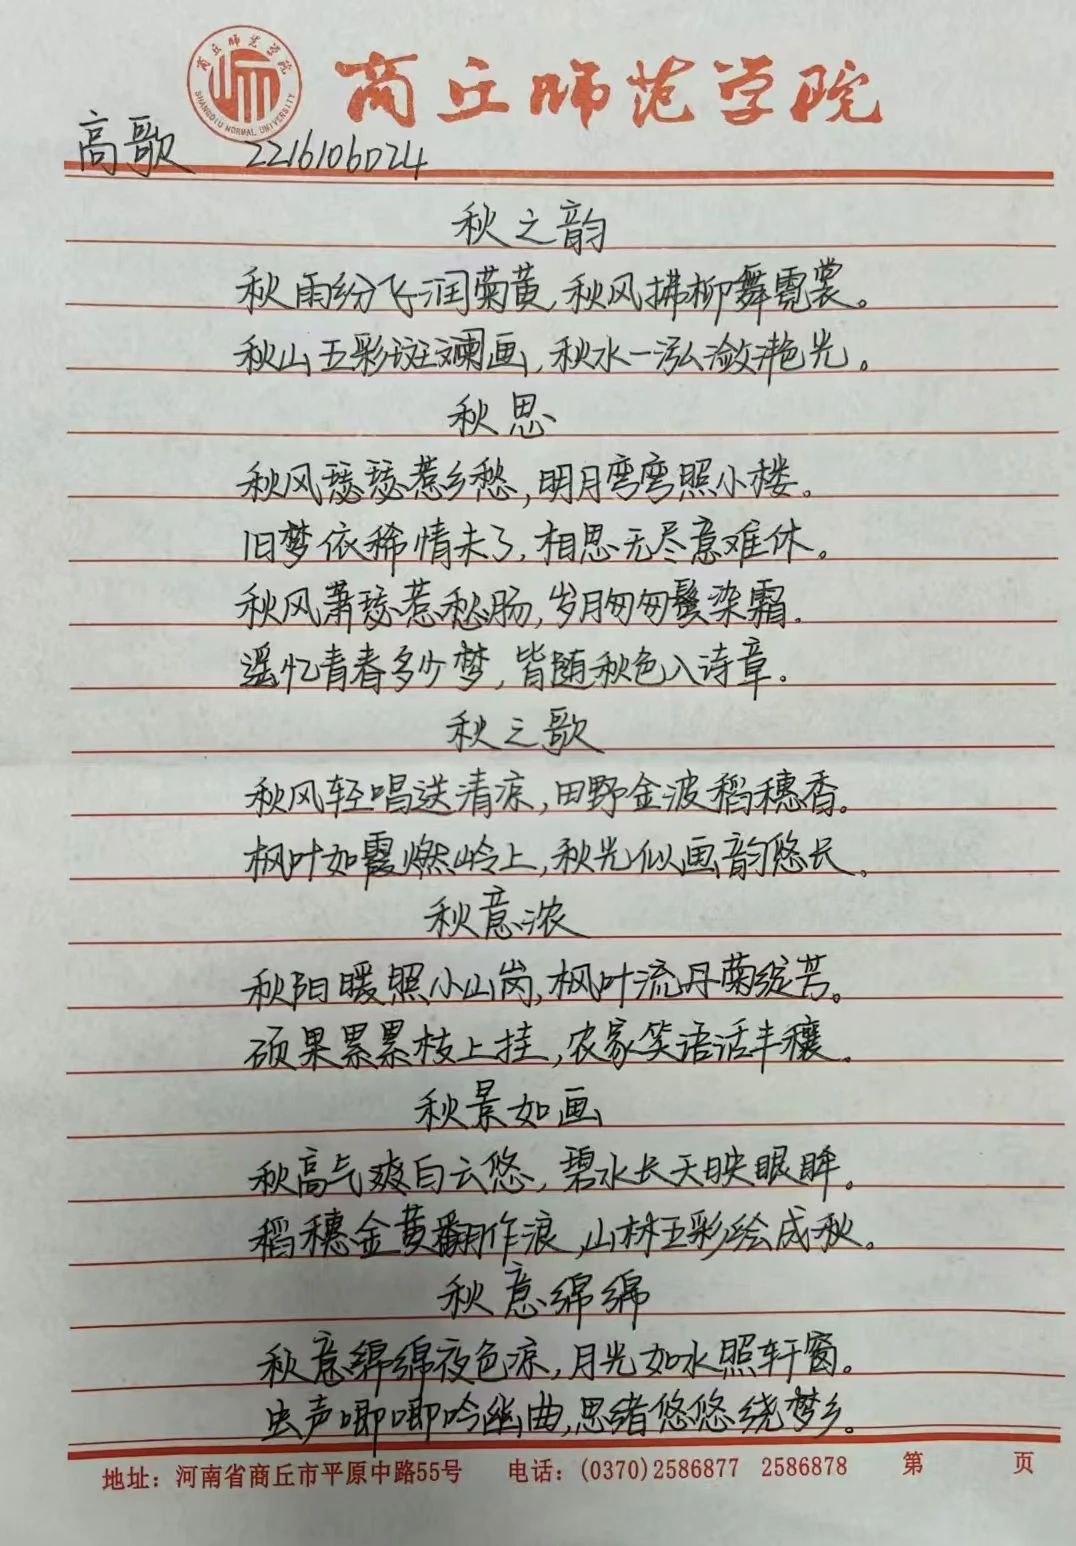 商丘师范学院
SHANGQIU NORMAL UNIVERSITY
商丘师范学院
高歌 2216106024
秋之韵
秋雨纷飞润菊黄,秋风拂柳舞霓裳。
秋山五彩斑斓画,秋水一泓潋滟光。
秋思
秋风瑟瑟惹乡愁,明月弯弯照小楼。
旧梦依稀情未了,相思无尽意难休。
秋风萧瑟惹愁肠,岁月匆匆鬓染霜.
遥忆青春多少梦,皆随秋色入诗章.
秋之歌
秋风轻唱送清凉,田野金波稻穗香。
枫叶如霞燃岭上,秋光似画韵悠长。
秋意浓
秋阳暖照小山岗,枫叶流丹菊绽芳。
硕果累累枝上挂,农家笑语话丰穰。
秋景如画
秋高气爽白云悠,碧水长天映眼眸。
稻穗金黄翻作浪,山林五彩绘成秋。
秋意绵绵
秋意绵绵夜色凉,月光如水照轩窗。
虫声唧唧吟幽曲,思绪悠悠绕梦乡。
地址:河南省商丘市平原中路55号 电话:(0370)2586877 2586878 第 页